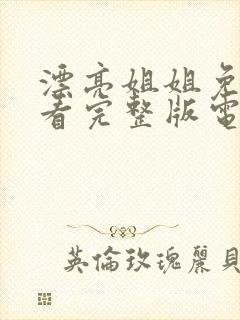 漂亮姐姐免
看完整版電
英倫玫瑰麗貝